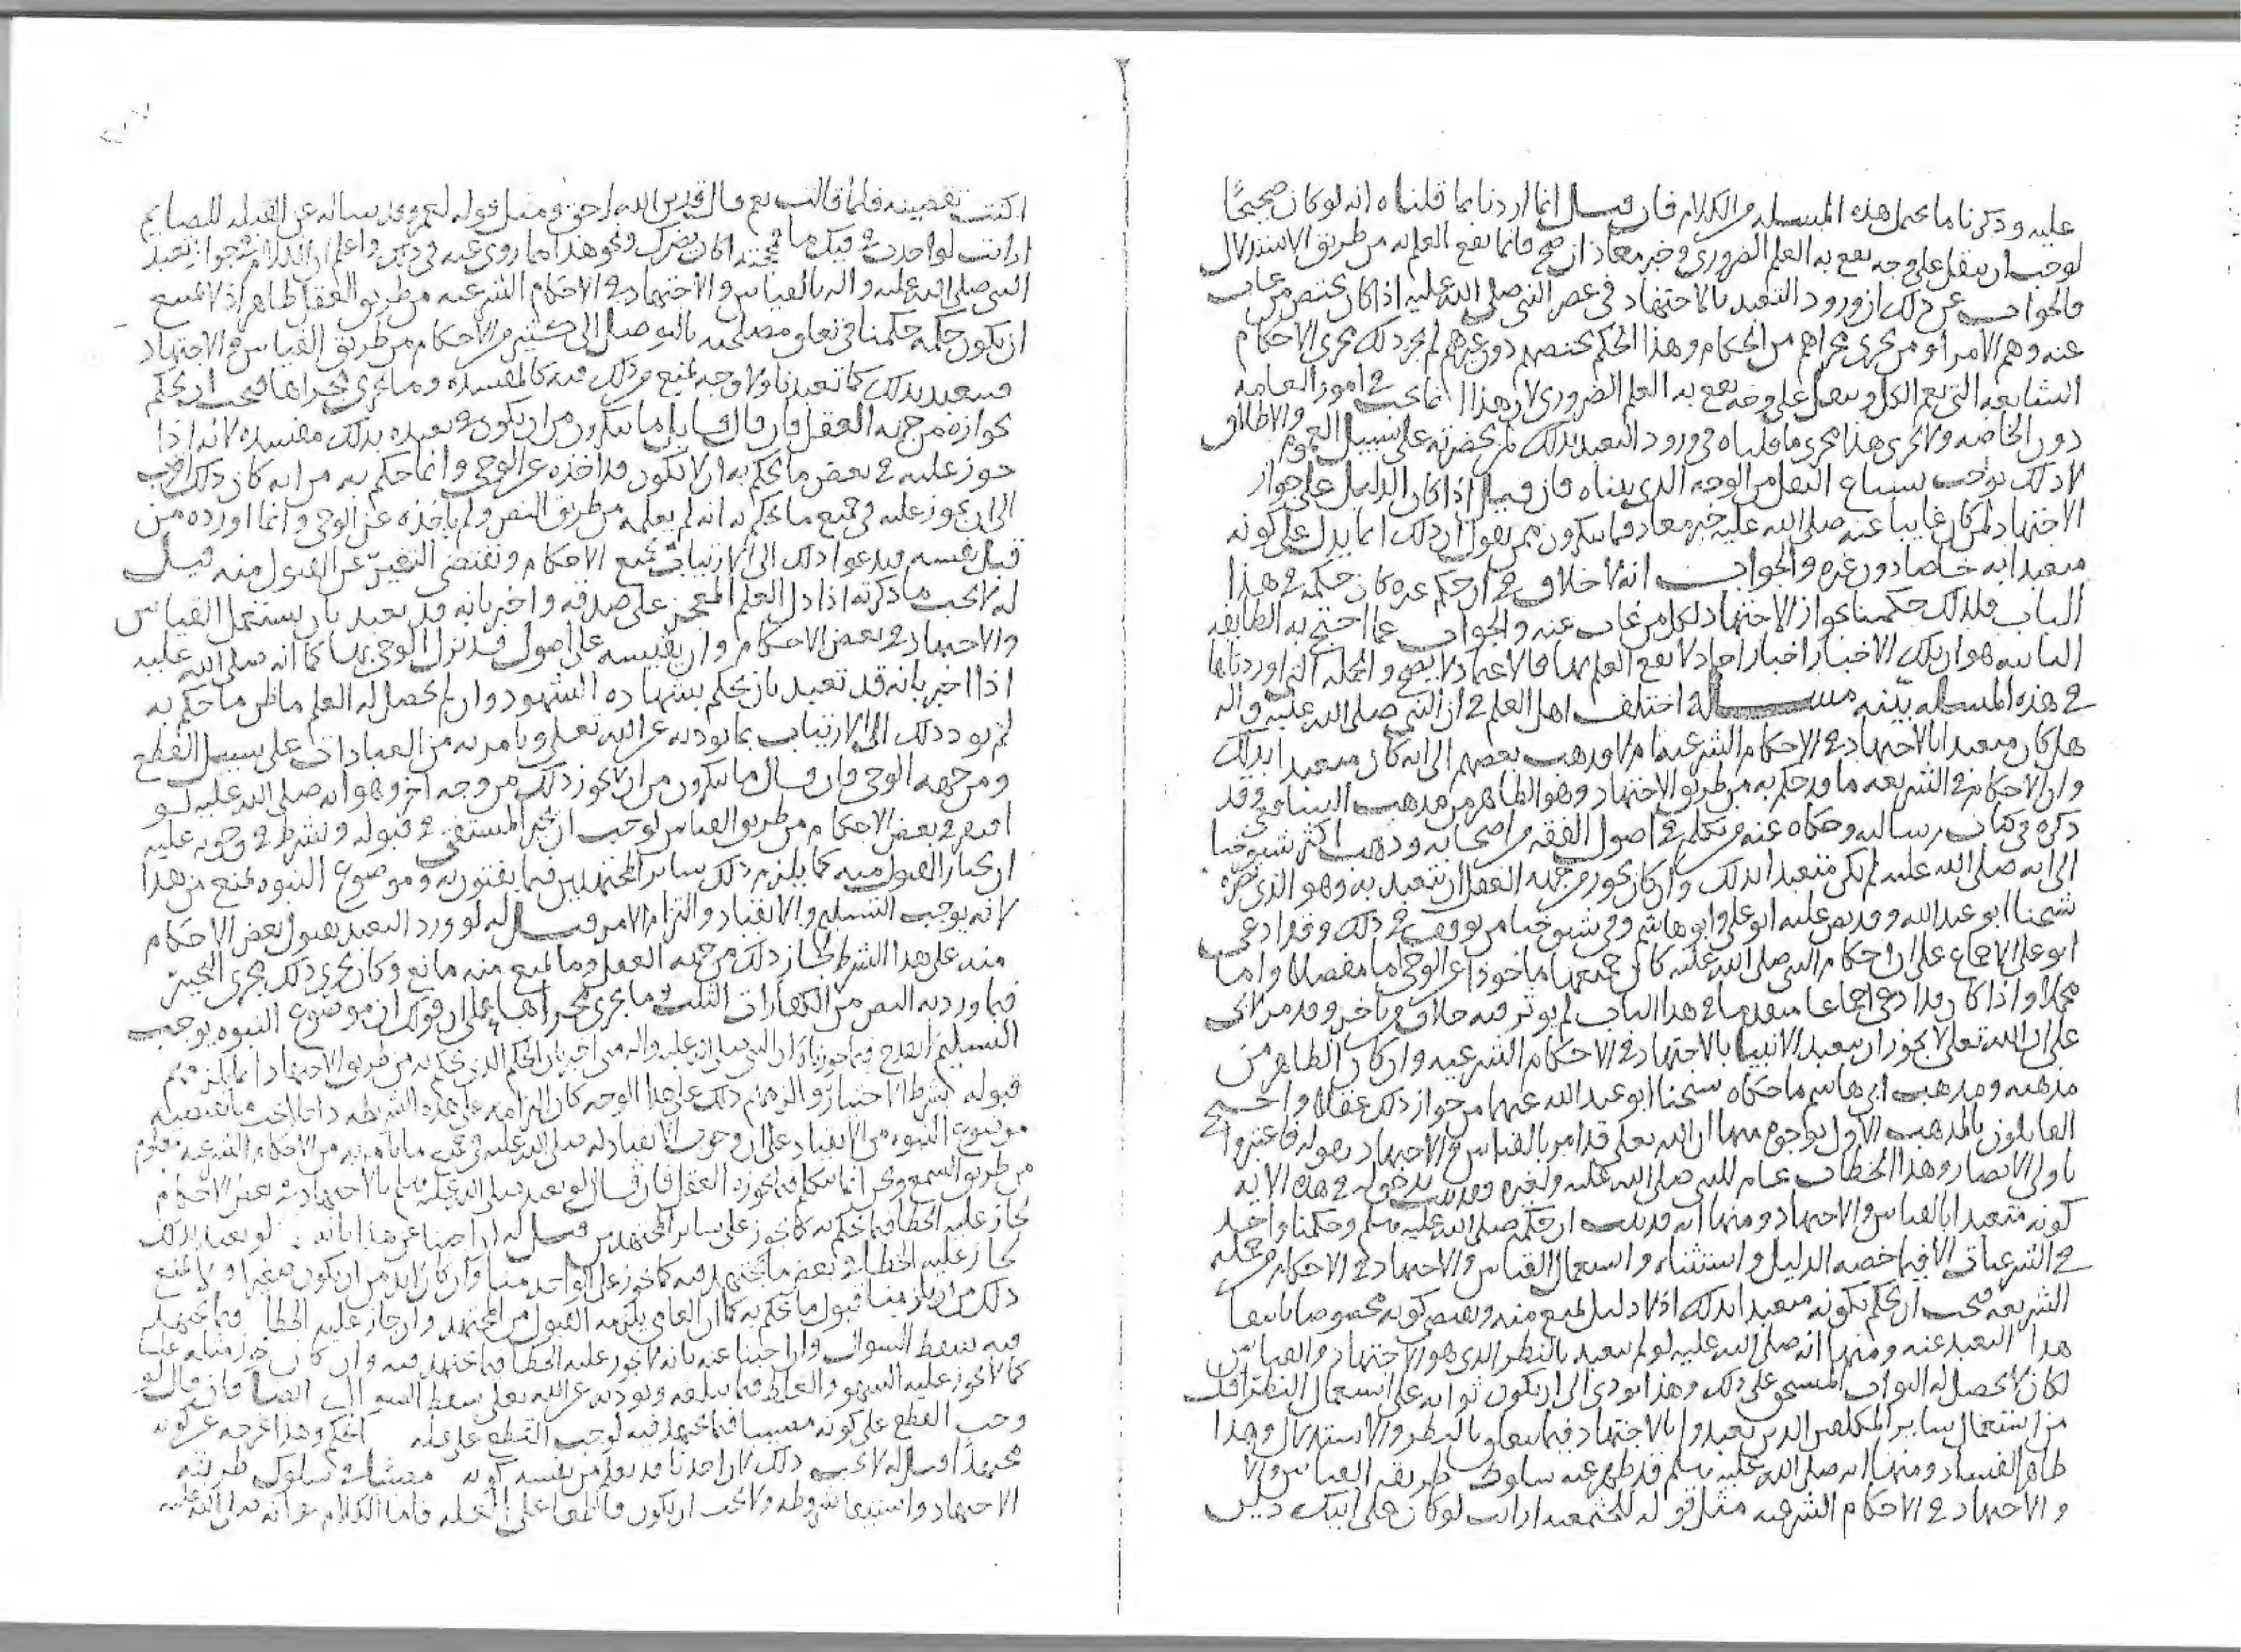 عليه وذكرنا ما يحمل هذه المسله من الكلام فان قيل انما اردنا بما قلناه انه لو كان صحيحًا
لوجب ان ينقل على وجه يقع به العلم الضروري وخبر معاذ ان صح فانما يقع العلم به من طريق الاستدلال
فالجواب عن ذلك ان ورود التعبد بالاجتهاد في عصر النبي صلى الله عليه اذا كان يختص من غاب
عنه وهم الامراء ومن يجري مجراهم من الحكام وهذا الحكم يختصهم دون غيرهم لم يجر ذلك مجرى الاحكام
الشايعه التي تعم الكل وينقل على وجه يقع به العلم الضروري لان هذا انما يجب في امور العامه
دون الخاصه ولا يجري هذا مجرى ما قلناه في ورود التعبد بذلك لمن بحضرته على سبيل العموم والاطلاق
لان ذلك يوجب شياع النقل من الوجه الذي بيناه فان قيل اذا كان الدليل على جواز
الاجتهاد لمن كان غايبا عنه صلى الله عليه خبر معاذ فما تنكرون ممن يقول ان ذلك انما يدل على كونه
متعبدا به خاصا دون غيره والجواب انه لا خلاف في ان حكم غيره كان حكمه في هذا
الباب فلذلك حكمنا بجواز الاجتهاد لكل من غاب عنه والجواب عما احتج به الطايفه
الثانيه هو ان تلك الاخبار اخبار احاد لا يقع العلم بها فالاعتماد لا يصح والجمله التي اوردناها
في هذه المسله بينه مسله اختلف اهل العلم في ان النبي صلى الله عليه واله
هل كان متعبدا بالاجتهاد في الاحكام الشرعيه ام لا فذهب بعضهم الى انه كان متعبدا بذلك
وان الاحكام في الشريعه ما قد حكم به من طريق الاجتهاد وهو الظاهر من مذهب الشافعي وقد
ذكره في كتاب رسالته وحكاه عنه من تكلم في اصول الفقه من اصحابه وذهب اكثر شيوخنا
الى انه صلى الله عليه لم يكن متعبدا بذلك وان كان يجوز من جهه العقل ان يتعبد به وهو الذي نصره
شيخنا ابو عبد الله وقد نص عليه ابو علي وابو هاشم وفي شيوخنا من توقف في ذلك وقد ادعى
ابو علي الاجماع على ان احكام النبي صلى الله عليه كان جميعها ماخوذا عن الوحي اما مفصلا واما
مجملا واذا كان قد ادعى اجماعا متقدما في هذا الباب لم يوثر فيه خلاف من تاخر وقد مر لابي
علي ان الله تعلى لا يجوز ان يتعبد الانبيا بالاجتهاد في الاحكام الشرعيه وان كان الظاهر من
مذهبه ومذهب ابي هاشم ما حكاه شيخنا ابو عبد الله عنهما من جواز ذلك عقلا واحتج
القايلون بالمذهب الاول بوجوه منها ان الله تعلى قد امر بالقياس والاجتهاد بقوله فاعتبروا
ياولي الابصار وهذا الخطاب عام للنبي صلى الله عليه ولغيره فقد ثبت بدخوله في هذه الايه
كونه متعبدا بالقياس والاجتهاد ومنها انه قد ثبت ان حكمه صلى الله عليه وسلم وحكمنا واحد
في الشرعيات الا فيما خصه الدليل واستثناه واستعمال القياس والاجتهاد في الاحكام من جمله
الشريعه فيجب ان يحكم بكونه متعبدا بذلك اذ لا دليل يمنع منه ويقتضي كونه مخصوصا بانتفا
هذا التعبد عنه ومنها انه صلى الله عليه لو لم يتعبد بالنظر الذي هو الاجتهاد والقياس
لكان لا يحصل له الثواب المستحق على ذلك وهذا يودي الى ان يكون ثوابه على استعمال النظر اقل
من استعمال ساير المكلفين الذين تعبدوا بالاجتهاد فيما يتعلق بالنظر والاستدلال وهذا
ظاهر الفساد ومنها انه صلى الله عليه وسلم قد ظهر عنه سلوك طريقه القياس
والاجتهاد في الاحكام الشرعيه مثل قوله للخثعميه ارايت لو كان على ابيك دين
اكنت تقضينه فلما قالت نعم قال فدين الله احق ومثل قوله لعمر وقد ساله عن القبله للصايم
ارايت لو اخذت في فيك ما فمججته اكان يضرك ونحو هذا مما روي عنه في ذلك واعلم ان الكلام في جواز تعبد
النبي صلى الله عليه واله بالقياس والاجتهاد في الاحكام الشرعيه من طريق العقل ظاهر اذ لا يمتنع
ان يكون حكمه حكمنا في تعلق مصلحته بالتوصل الى كثير من الاحكام من طريق القياس والاجتهاد
فيتعبد بذلك كما تعبدنا ولا وجه يمنع من ذلك فيه كالمفسده وما يجري مجراها فيجب ان يحكم
بجوازه من جهه العقل فان قال قايل ما تنكرون من ان يكون في تعبده بذلك مفسده لانه اذا
جوز عليه في بعض ما يحكم به ان لا يكون قد اخذه عن الوحي وانما حكم به من رايه كان ذلك اقرب
الى ان يجوز عليه في جميع ما يحكم به انه لم يعلمه من طريق النص ولم ياخذه عن الوحي وانما اورده من
قبل نفسه فيدعو ذلك الى الارتياب بجميع الاحكام ويقتضي التنفير عن القبول منه قيل
له لا يجب ما ذكرته اذا دل العلم المعجز على صدقه واخبر بانه قد تعبد بان يستعمل القياس
والاجتهاد في بعض الاحكام وان يقيسه على اصول قد نزل الوحي بها كما انه صلى الله عليه
اذا اخبر بانه قد تعبد بان يحكم بشهاده الشهود وان لم يحصل له العلم ما ظن ما حكم به
لم يود ذلك الى الارتياب بما يوديه عن الله تعلى ويامر به من العبادات على سبيل القطع
ومن جهه الوحي فان قال ما تنكرون من ان لا يجوز ذلك من وجه اخر وهو انه صلى الله عليه لو
افتى في بعض الاحكام من طريق القياس لوجب ان يخير المستفتي في قبوله ويشرط في وجوبه عليه
ان يختار القبول منه كما يلزم ذلك ساير المجتهدين فيما يفتون به وموضوع النبوه يمنع من هذا
لانه يوجب التسليم والانقياد والتزام الامر قيل له لو ورد التعبد بقبول بعض الاحكام
منه على هذا الشرط لجاز ذلك من جهه العقل وما يمنع منه مانع وكان يجري ذلك مجرى التخيير
فيما ورد به النص من الكفارات الثلث وما يجري مجراها على ان قولك ان موضوع النبوه يوجب
قبوله بشرط الاختيار والزمهم ذلك على هذا الوجه كان الزامه على هذه الشريطه
موضوع النبوه من الانقياد على ان وجوب الانقياد له صلى الله عليه في جميع ما يامر به من الاحكام الشرعيه معلوم
من طريق السمع ونحن انما نتكلم فيما يجوزه العقل فان قال لو تعبد صلى الله عليه وسلم بالاجتهاد في بعض الاحكام
لجاز عليه الخطا فيما يحكم به كما يجوز على ساير المجتهدين قيل له لو تعبد بذلك
لجاز عليه الخطا في بعض ما يجتهد فيه كما يجوز على الواحد منا وان كان لابد من ان يكون صغيرا ولا يمنع
ذلك من ان يلزمنا قبول ما يحكم به كما ان العامي يلزمه القبول من المجتهد وان جاز عليه الخطا فيما يجتهد
فيه سقط السوال وان اجبنا عنه بانه لا يجوز عليه الخطا فيما يجتهد فيه وان كان يجوز مثله علينا
كما لا يجوز عليه السهو والغلط فيما يبلغه ويوديه عن الله تعلى سقط ايضا فان قال لو
وجب القطع على كونه مصيبا فيما يجتهد فيه لوجب القطع على عله الحكم وهذا يخرجه عن كونه
مجتهدا قيل له لا يجب ذلك لان احدنا قد يعلم من نفسه كونه في سلوك طريقه
الاجتهاد واستيفا شروطه ولا يجب ان يكون قاطعا على العله فاما الكلام في انه صلى الله عليه